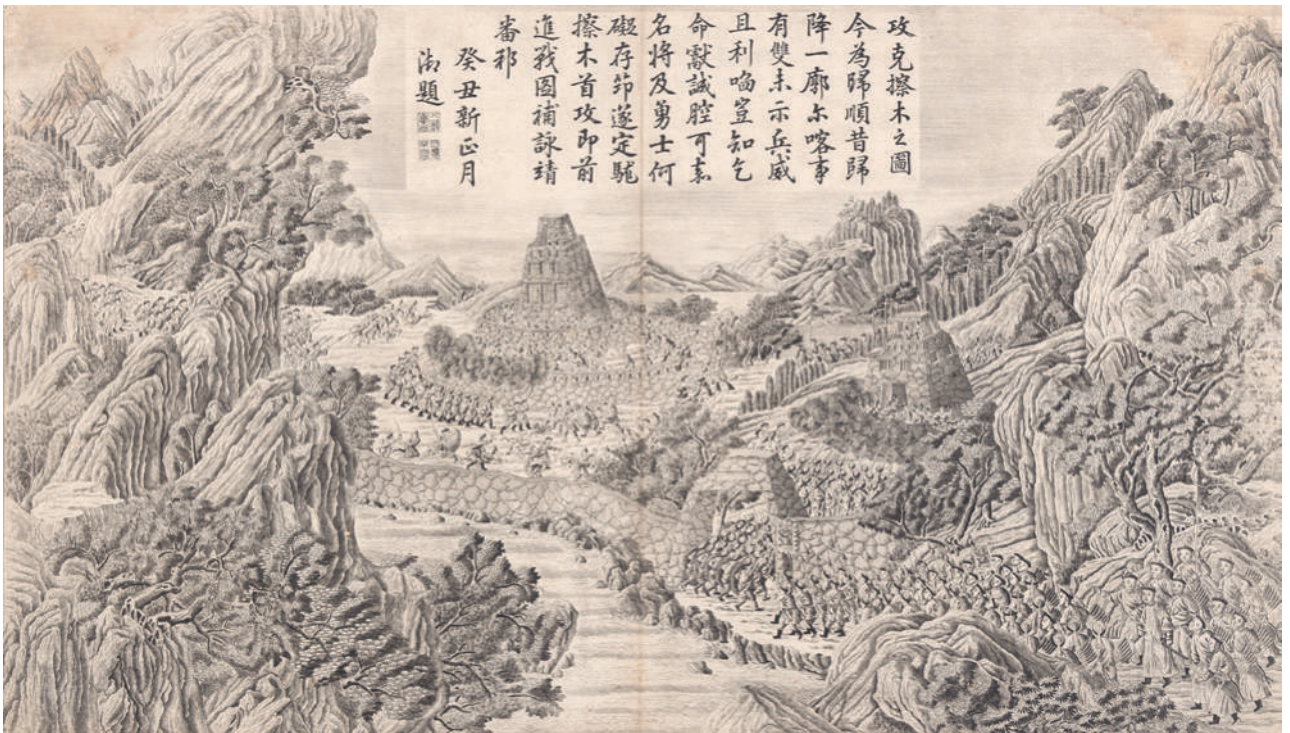 攻克擦木之圖
今為歸順昔歸
降一廓尔喀事
有雙未示兵威
且利啗豈知乞
命獻誠腔可素
名将及勇士何
礙存卭遂定駹
擦木首攻即前
進戰圖補詠靖
番邦
癸丑新正月
御題